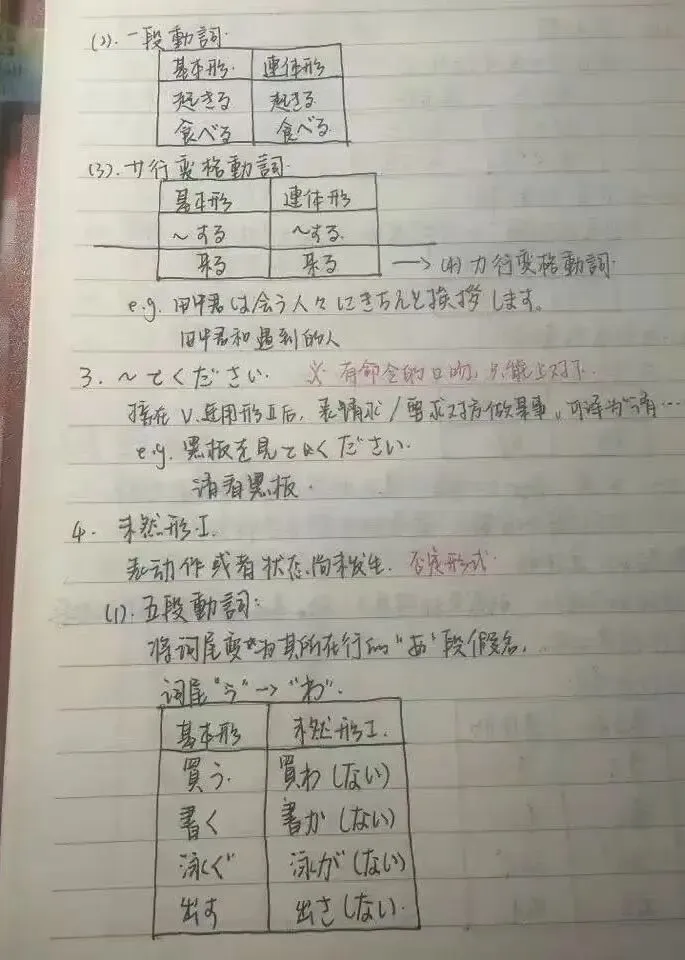 (2). 一段動詞.
基本形. 連体形
起きる 起きる
食べる 食べる
(3). サ行変格動詞.
基本形 連体形
～する ～する.
来る 来る → (4) カ行変格動詞.
e.g. 田中君は会う人々にきちんと挨拶します。
田中君和遇到的人
3. ～てください. ※ 有命令的口吻, 只能上对下.
接在 V. 连用形Ⅱ后, 表请求/要求对方做某事, 可译为"请…
e.g. 黒板を見てください.
请看黑板.
4. 未然形Ⅰ.
表动作或者状态尚未发生. 否定形式.
(1). 五段動詞:
将词尾变为其所在行的"あ"段假名,
词尾"う"→"わ".
基本形 未然形Ⅰ.
買う. 買わ(ない)
書く 書か(ない)
泳ぐ 泳が(ない)
出す 出さ(ない).